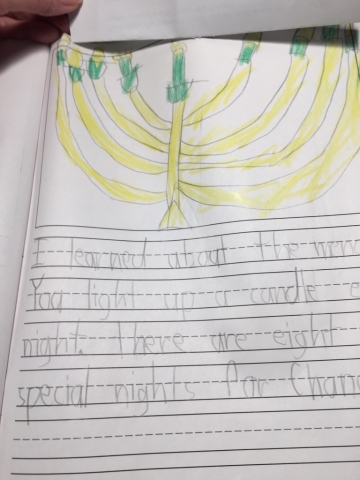 I learned about the men
You light up a candle e
night. There are eight
special nights for Chan